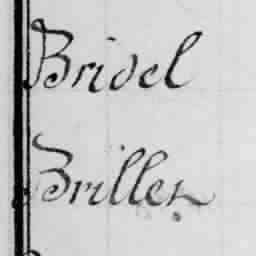 Bridel
Briller